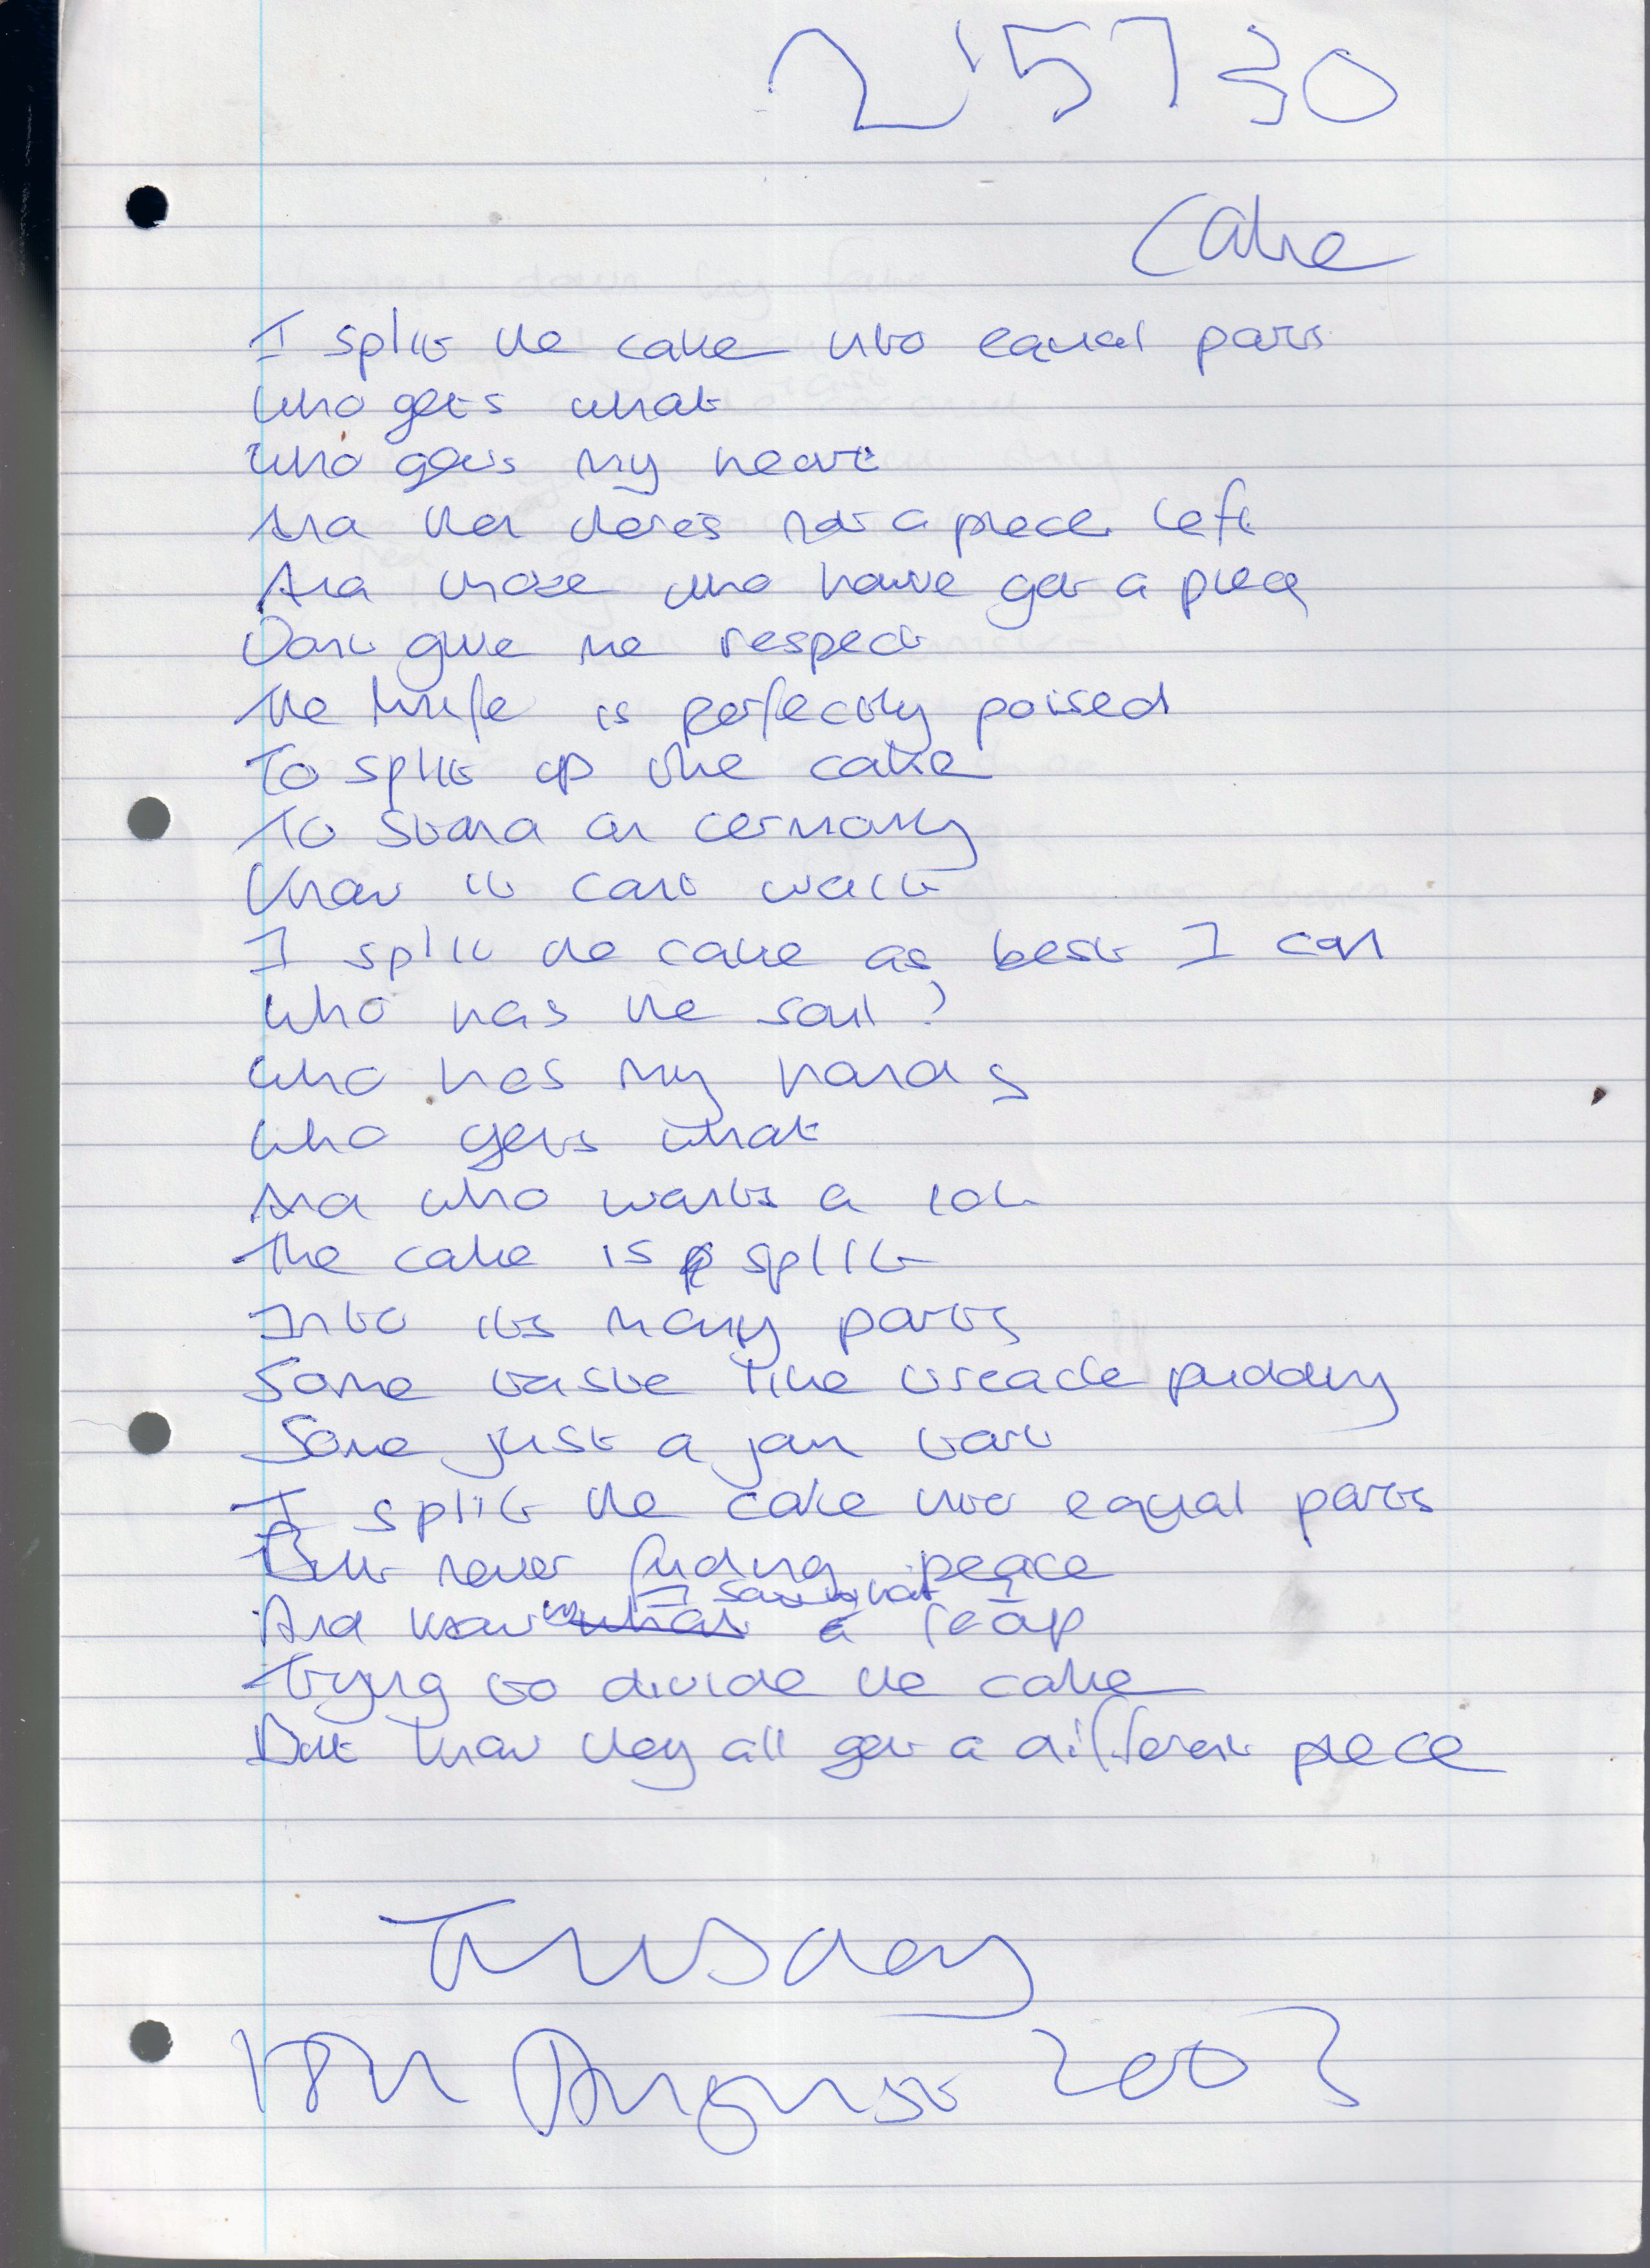 215730
Cake
I split the cake into equal parts
Who gets what
Who gets my heart
And then theres not a piece left
And those who have got a piece
Dont give me respect
The knife is perfectly poised
To split up the cake
To stand on cermony
Know it cant wait
I split the cake as best I can
Who has the soul?
Who has my hands
Who gets what
And who wants a lot
The cake is split
Into its many parts
Some taste like treacle pudding
Some just a jam tart
I split the cake into equal parts
But never finding peace
I sow what I
And know reap
Trying to divide the cake
But know they all get a different piece
Tuesday
August 2003